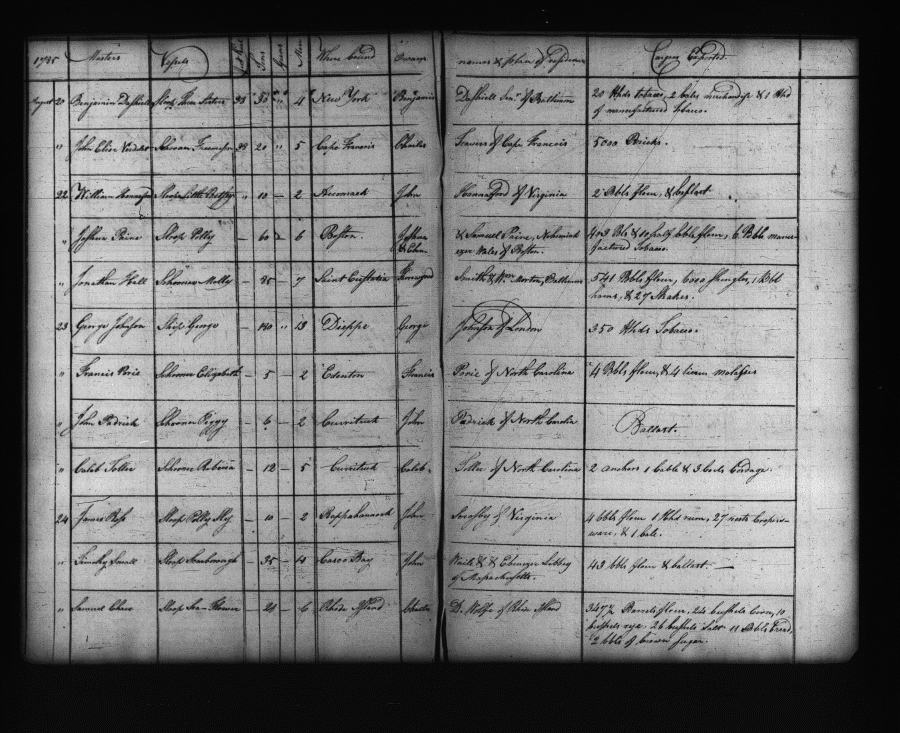 1785 Masters Vessels Tons Guns Men Where bound Owners names & place of residence Cargoes Exported
August 20 Benjamin Dashiell Sloop Three Sisters 33 50 " 4 New York Benjamin Dashiell Senr of Baltimore 20 Hhds tobacco, 2 bales merchandise & 1 Hhd
of manufactured tobacco.
" John Elias Schooner 33 20 " 5 Cape Francois Charles Travers of Cape Francois 5000 Bricks.
22 William Sloop Little Betsey " 10 — 2 Accomack John Hannaford of Virginia 2 Bbls flour, & ballast
" Joshua Paine Sloop Polly — 60 2 6 Boston. Joshua & Samuel Paine, Nehemiah
& Eben- ezer Wales of Boston. 403 Bbl & 10 half bbls flour, 6 Bbls manu-
factured tobacco.
" Jonathan Hall Schooner Molly — 35 — 7 Saint Eustatia Smith & Wm Morton, Baltimore 541 Bbls flour, 6000 Shingles, 1 Bbl
hams, & 27 Shakes.
23 George Johnson Ship George — 180 " 13 Dieppe George Johnson of London 350 Hhds Tobacco.
" Francis Schooner Elizabeth — 5 — 2 Edenton Francis of North Carolina 4 Bbls flour, & 4 tierces molasses
" John Padrick Schooner Peggy — 6 — 2 Currituck John Padrick of North Carolina Ballast.
" Caleb Schooner Rebecca — 12 — 5 Currituck Caleb of North Carolina 2 anchors 1 cable & 3 coils Cordage.
24 James Ross Sloop Polly — 10 — 2 Rappahannock John of Virginia 4 bbls flour 1 Hhd rum, 27 nests Coopers-
ware, & 1 bale.
" Timothy Small Sloop Scarborough — 35 — 4 Casco Bay John Waite & Ebenezer Libbey
of Massachusetts. 43 bbls flour & ballast —
" Samuel Sloop Sea-Flower — 24 — 6 Rhode Island Charles D. Wolfe of Rhode Island 347½ Barrels flour, 24 bushels Corn, 10
bushels rye, 26 bushels Salt 11 Bbls Bread,
2 bbls of brown Sugar.